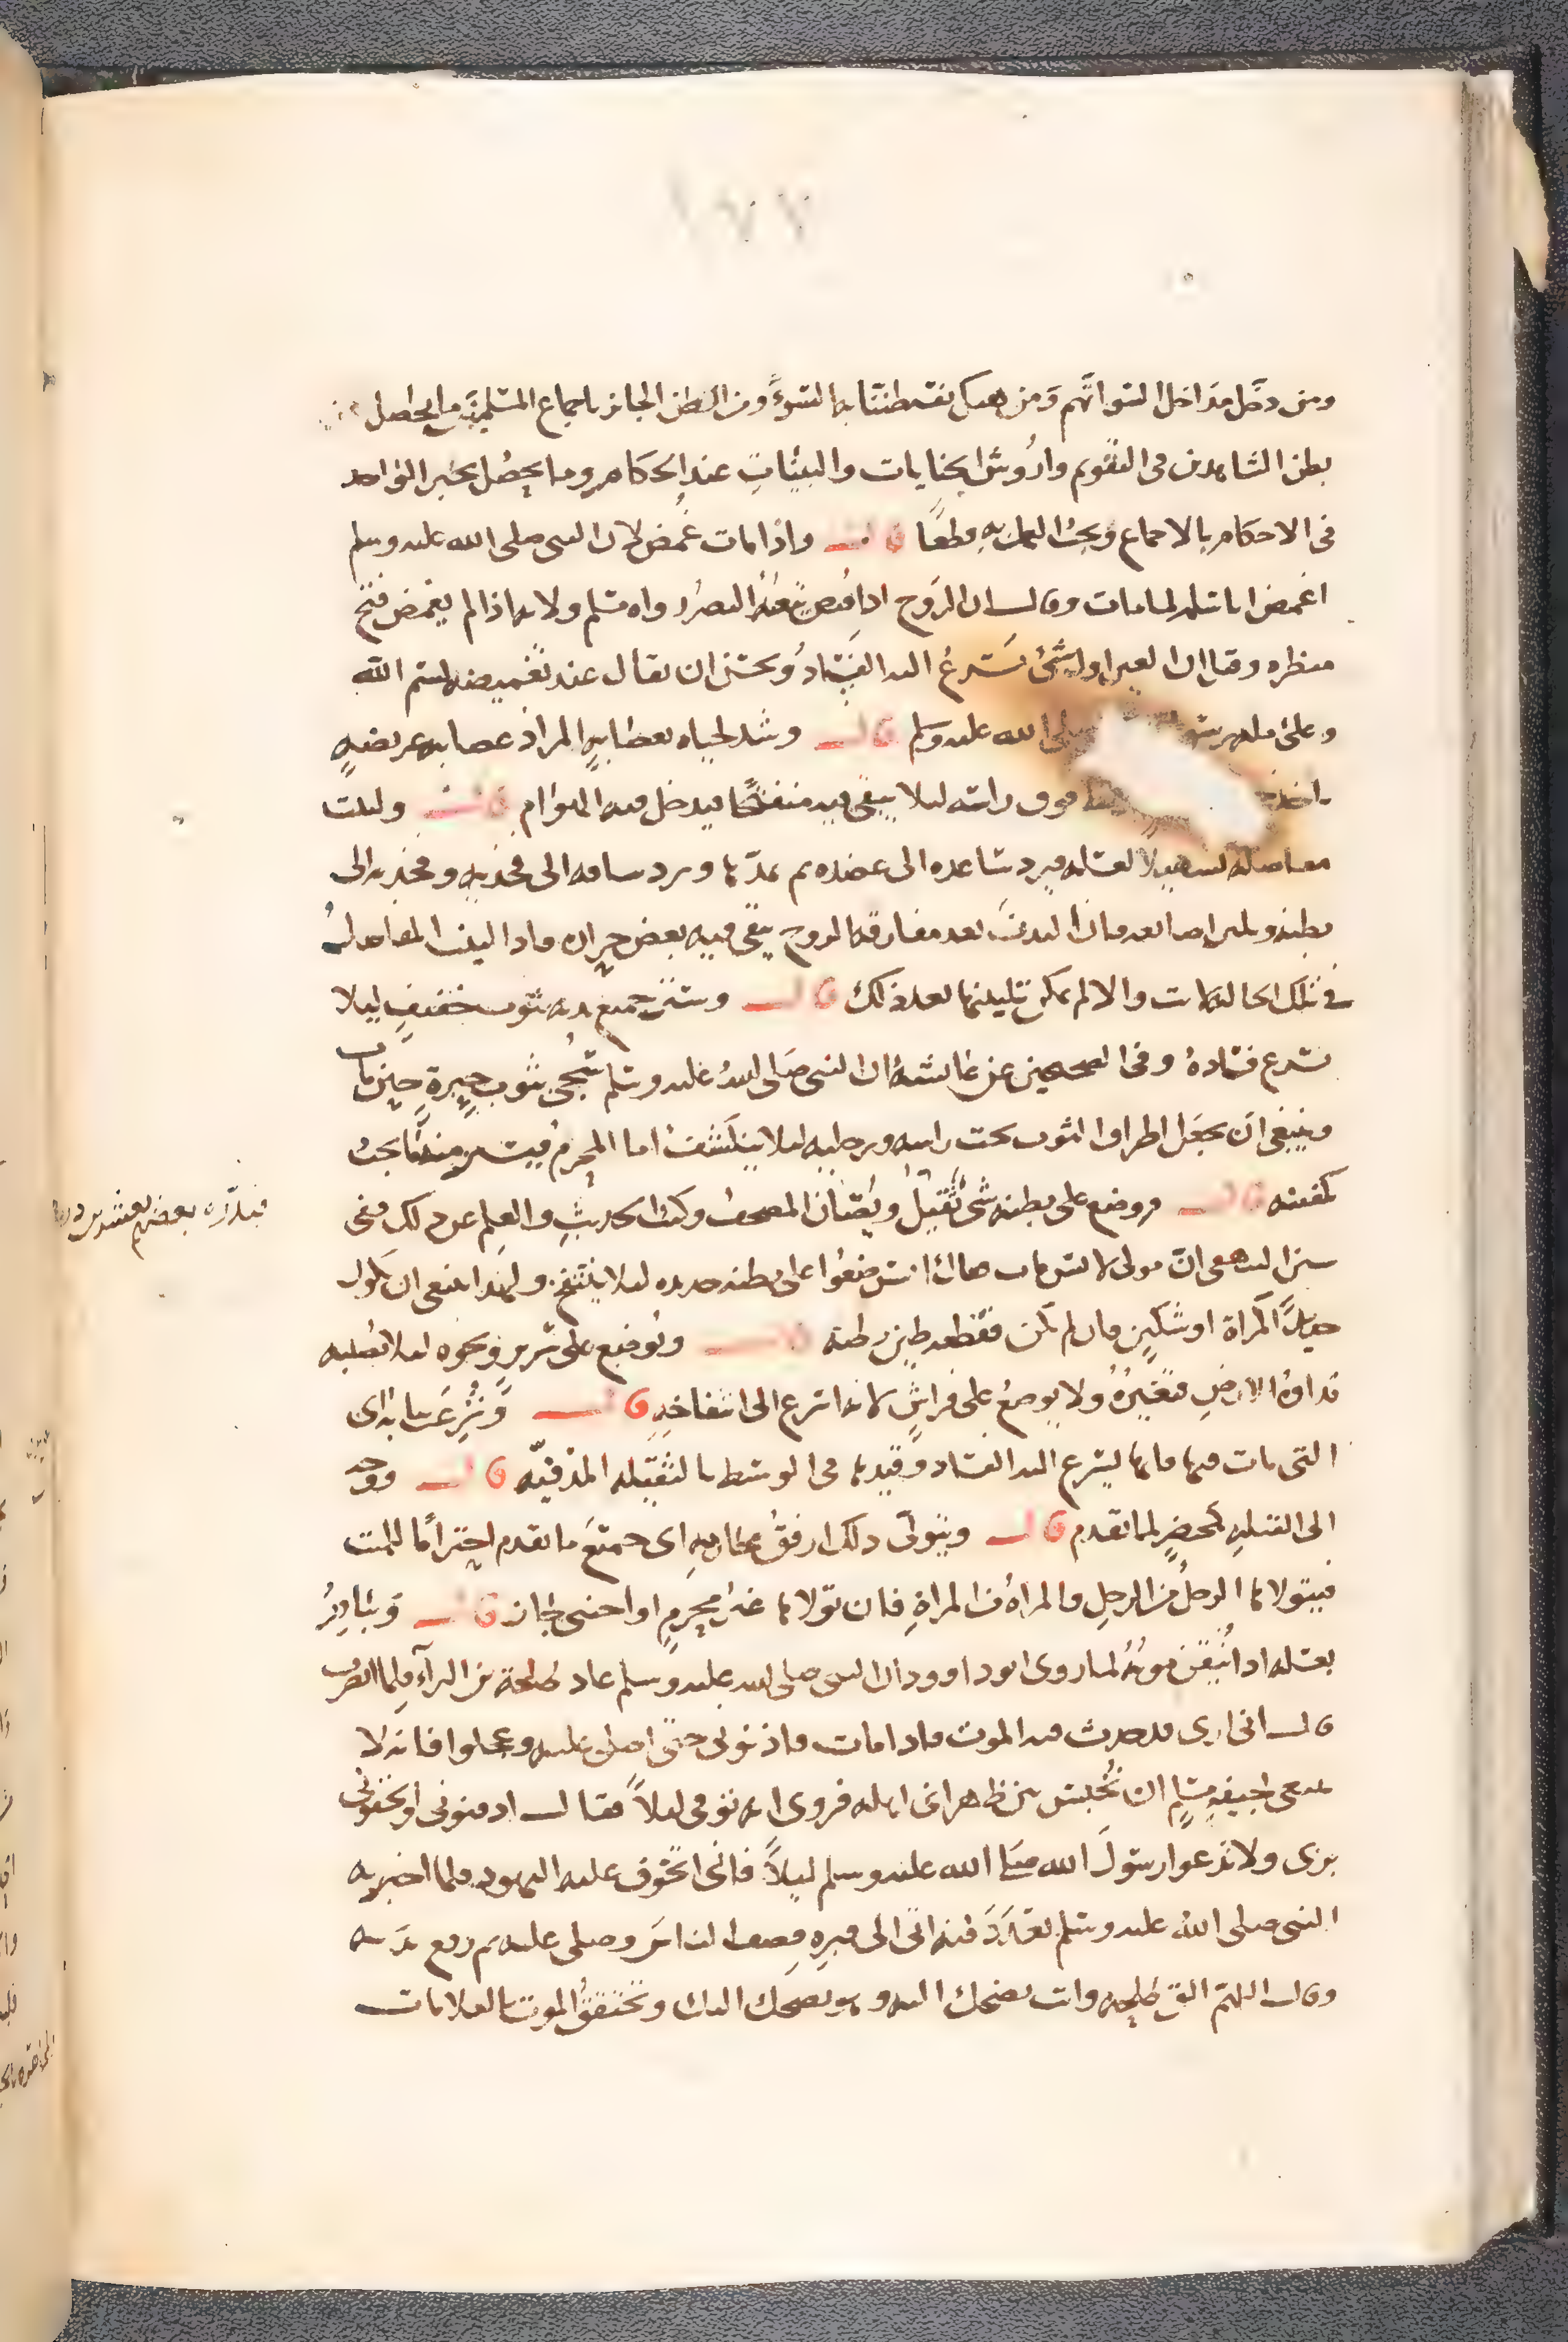 ١٧٧
ومن دخل مداخل السوء اتهم ومن هتك نفسه ظننا به السوء ومن الظن الجائز باجماع المسلمين ما يحصل
بظن الشاهدين في التقويم واروش الجنايات والبينات عند الحكام وما يحصل بخبر الواحد
في الاحكام بالاجماع ويجب العمل به قطعا قال واذا مات غمض لان النبي صلى الله عليه وسلم
اغمض ابا سلمة لما مات وقال ان الروح اذا قبض تبعه البصر رواه مسلم ولانه اذا لم يغمض قبح
منظره وقال ان العين اول شئ يسرع اليه الفساد ويحسن ان يقال عند تغميضه بسم الله
وعلى ملة رسول صلى الله عليه وسلم قال وشد لحياه بعصابة المراد عصابة عريضة
فوق راسه ليلا يبقى فيه منفتحا فيدخل فيه الهوام قال ولينت
مفاصله تسهيلا لغسله فيرد ساعده الى عضده ثم يمدها ويرد ساقه الى فخذيه وفخذيه الى
بطنه ويلين اصابعه فان البدن بعد مفارقة الروح يبقى فيه بعض حرارة فاذا لينت المفاصل
في تلك الحالة لانت والا لم يمكن تليينها بعد ذلك قال وستر جميع بدنه بثوب خفيف ليلا
يسرع فساده وفي الصحيحين عن عائشة ان النبي صلى الله عليه وسلم سجي بثوب حبرة حين مات
وينبغي ان يجعل اطراف الثوب تحت راسه ورجليه ليلا ينكشف اما المحرم فيستر منه ما يجب
تكفينه قال ووضع على بطنه شئ ثقيل ويصان المصحف وكتب الحديث والعلم عن ذلك ففي
سنن البيهقي ان مولى لانس مات فقال انس ضعوا على بطنه حديدة ليلا ينتفخ ولهذا ينبغي ان يكون
حديدا كمراة او سكين فان لم يكن فقطعة طين رطبة قال ويوضع على سرير ونحوه ليلا تصيبه
نداوة الارض فتغيره ولا يوضع على فراش لانه اسرع الى انتفاخه قال ونزع ثيابه اى
التي مات فيها فانها يسرع اليه الفساد وقيدها في الوسيط بالثقيلة المدفية قال ووجه
الى القبلة كمحضر لما تقدم قال ويتولى ذلك ارفق محارمه اى جميع ما تقدم احتراما للميت
فيتولاها الرجل من الرجل والمراة من المراة فان تولاها غير محرم او اجنبي جاز قال ويبادر
بغسله اذا تيقن موته لما روى ابو داوود ان النبي صلى الله عليه وسلم عاد طلحة بن البراء فلما انصرف
قال اني ارى قد حدث فيه الموت فاذا مات فاذنوني حتى اصلي عليه وعجلوا فانه لا
ينبغي لجيفة مسلم ان تحبس بين ظهراني اهله فروى انه توفي ليلا فقال ادفنوني والحقوني
بربي ولا تدعوا رسول الله صلى الله عليه وسلم ليلا فاني اتخوف عليه اليهود فلما اخبر به
النبي صلى الله عليه وسلم اتى الى قبره فصف الناس وصلى عليه ثم رفع يديه
وقال اللهم الق طلحة وانت تضحك اليه وهو يضحك اليك وتحقق الموت بالعلامات